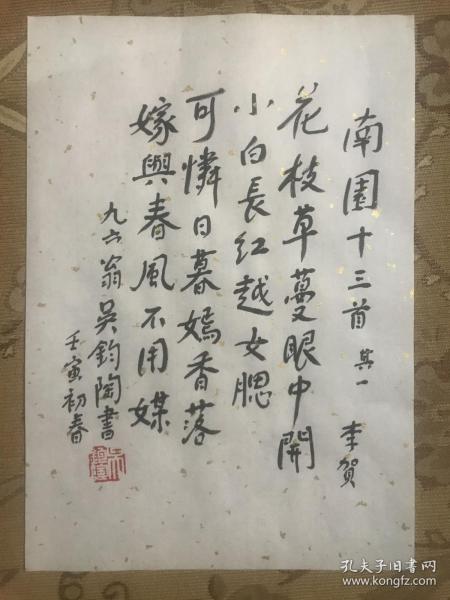 南園十三首 其一 李賀
花枝草蔓眼中開
小白長紅越女腮
可憐日暮嫣香落
嫁與春風不用媒
九六翁吳鈞陶書
壬寅初春
孔夫子旧书网
www.kongfz.com